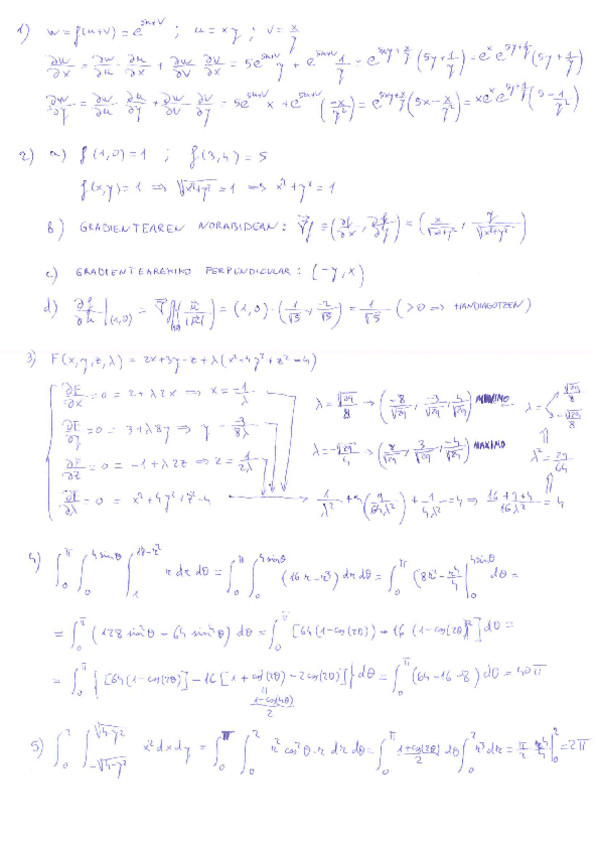 1) w = f(u+v) = e^{5u+v} ; u = xy ; v = x/y
∂u/∂x = ∂w/∂u · ∂u/∂x + ∂w/∂v ∂v/∂x = 5e^{5u+v} y + e^{5u+v} 1/y = e^{5xy+x/y} (5y + 1/y) = e^x e^{5y+1/y} (5y + 1/y)
∂w/∂y = ∂w/∂u · ∂u/∂y + ∂w/∂v · ∂v/∂y = 5e^{5u+v} x + e^{5u+v} (-x/y²) = e^{5xy+x/y} (5x - x/y²) = x e^x e^{5y+1/y} (5 - 1/y²)
2) a) f(1,0) = 1 ; f(3,4) = 5
f(x,y) = 1 ⇒ √(x²+y²) = 1 ⇒ x²+y² = 1
b) GRADIENTEAREN NORABIDEAN: ∇f = (∂f/∂x, ∂f/∂y) = (x/√(x²+y²), y/√(x²+y²))
c) GRADIENTEAREKIKO PERPENDICULAR: (-y, x)
d) ∂f/∂u |(1,0) = ∇f|(1,0) · u/|u| = (1,0) · (1/√5, -2/√5) = 1/√5 (>0 ⇒ HANDIAGOTZEN)
3) F(x,y,z,λ) = 2x+3y-z+λ(x²+4y²+z²-4)
∂F/∂x = 0 = 2+λ2x ⇒ x = -1/λ
∂F/∂y = 0 = 3+λ8y ⇒ y = -3/8λ
∂F/∂z = 0 = -1+λ2z ⇒ z = 1/2λ
∂F/∂λ = 0 = x²+4y²+z²-4 → 1/λ² + 4(9/64λ²) + 1/4λ² = 4 ⇒ (16+9+4)/16λ² = 4
λ = √29/8 → (-8/√29, -3/√29, 4/√29) MINIMO
λ = -√29/4 → (8/√29, 3/√29, -4/√29) MAXIMO
λ = √29/8, -√29/8
λ² = 29/64
4) ∫₀^π ∫₀^{4sinθ} ∫₁^{17-r²} r dr dθ = ∫₀^π ∫₀^{4sinθ} (16r - r³) dr dθ = ∫₀^π (8r² - r⁴/4 |₀^{4sinθ} dθ =
= ∫₀^π (128 sin²θ - 64 sin⁴θ) dθ = ∫₀^π [64(1-cos(2θ)) - 16 (1-cos(2θ))²] dθ =
= ∫₀^π {[64(1-cos(2θ)] - 16[1+cos²(2θ) - 2cos(2θ)]} dθ = ∫₀^π (64-16-8) dθ = 40π
1-cos(4θ)/2
5) ∫₀² ∫_{-√(4-y²)}^{√(4-y²)} x² dx dy = ∫₀^π ∫₀² r² cos²θ · r dr dθ = ∫₀^π (1+cos(2θ))/2 dθ ∫₀² r³ dr = π/2 r⁴/4 |₀² = 2π